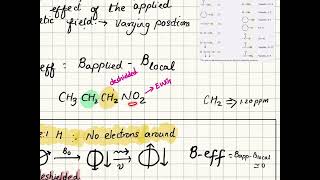 effect of the applied
tic field → varying positions
eff : Bapplied - Blocal
deshielded
CH3 CH2 CH2 NO2 → EWG
CH2 → 1.20 ppm
el H : No electrons around
B0
B-eff = Bapp - Blocal
≈ 0
deshielded